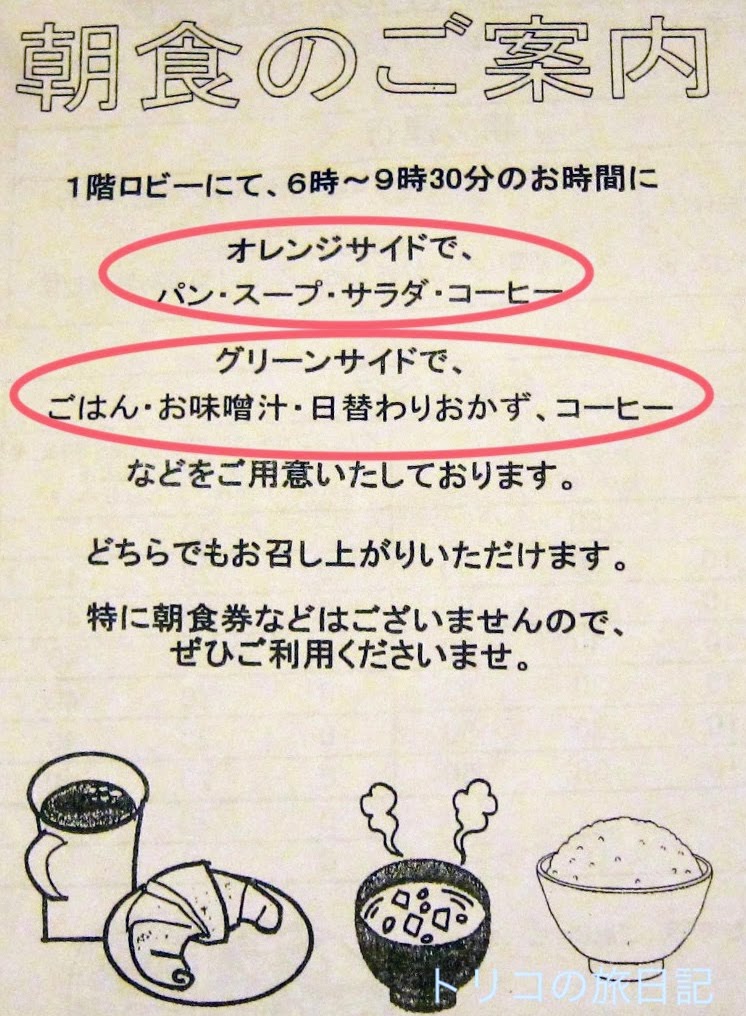 朝食のご案内
1階ロビーにて、6時～9時30分のお時間に
オレンジサイドで、
パン・スープ・サラダ・コーヒー
グリーンサイドで、
ごはん・お味噌汁・日替わりおかず、コーヒー
などをご用意いたしております。
どちらでもお召し上がりいただけます。
特に朝食券などはございませんので、
ぜひご利用くださいませ。
トリコの旅日記